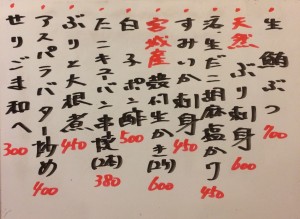 生鮪ぶつ 700
天然ぶり刺身 600
生だこ胡麻塩かけ 450
すみいか刺身 450
宮城産殻付生かき(2ケ) 600
白子ポン酢 500
たこキューバン串焼(2本) 380
ぶりと大根煮 450
アスパラバター炒め 400
せりごま和へ 300